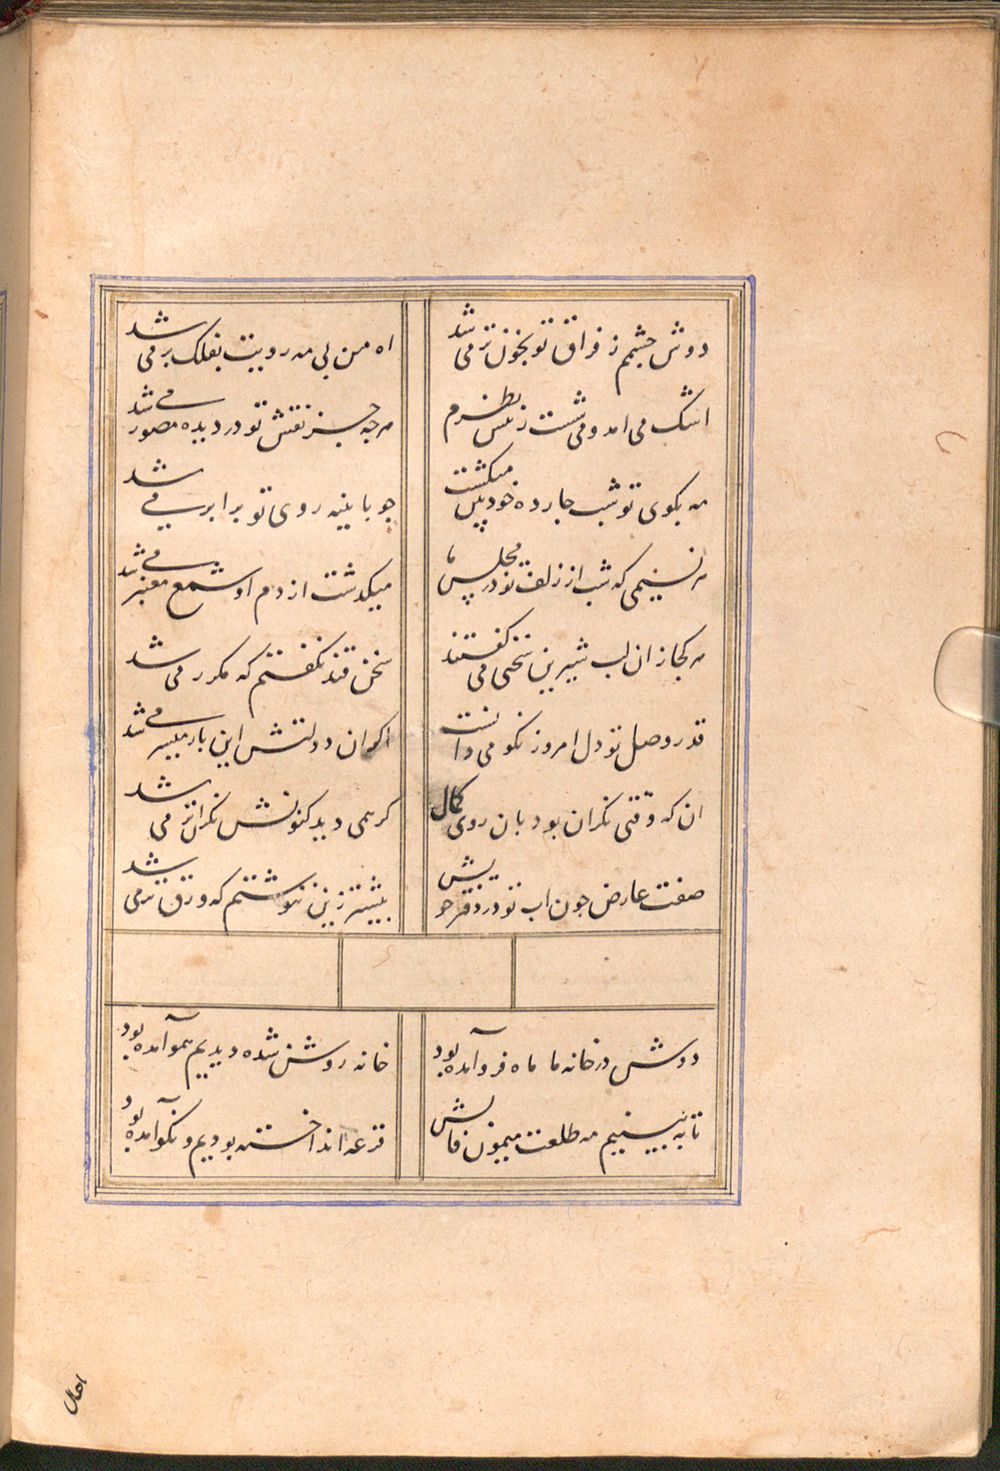 دوش چشمم ز فراق تو بخون تر می شد
اه من بی مه رویت بفلک بر می شد
اشک می امد و می شست ز پیش نظرم
هرچه جز نقش تو در دیده مصور می شد
مه بکوی تو شب چارده خود پیش میکشت
چو باینه روی تو برابر می شد
هر نسیمی که شب از زلف تو در مجلس ما
میکدشت از دم او شمع معنبر می شد
هر کجا زان لب شیرین سخنی می کفتند
سخن قند نکفتم که مکرر می شد
قدر وصل تو دل امروز نکو می دانست
اکر ان دولتش این بار میسر می شد
ان که وقتی نکران بود بان روی کمال
کر همی دید کنونش نکران تر می شد
صفت عارض چون اب تو در دفتر خویش
بیشتر زین ننوشتم که ورق تر می شد
دوش در خانه ما ماه فرو آمده بود
خانه روشن شده دیدیم همو آمده بود
تا ببینیم مه طلعت میمون فالش
قرعه انداخته بودیم و نکو آمده بود